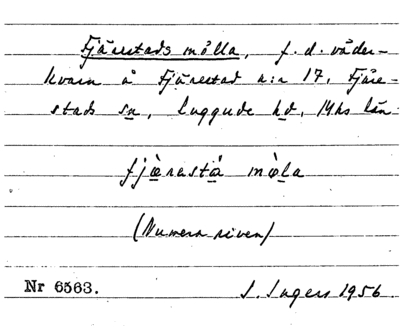 Fjärestads mölla, f.d. väder-
kvarn å Fjärestad n:r 17, Fjäre-
stads sn, Luggude hd, Mhs län.
fjæ̀rastá mø̀la
(Numera riven)
Nr 6563. I. Ingers 1956.